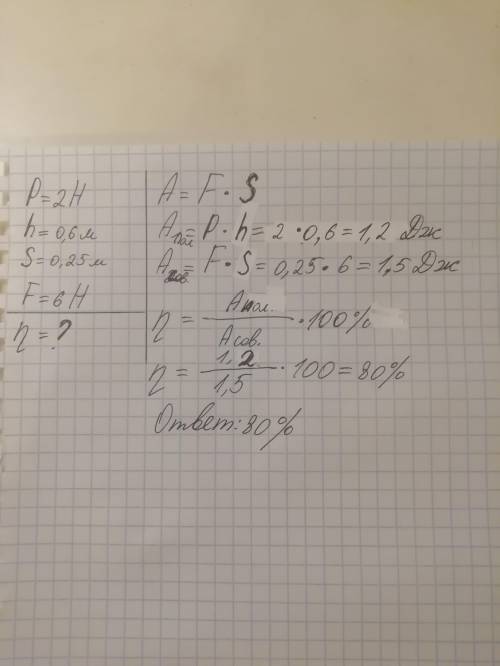 P = 2Н
h = 0,6 м
S = 0,25 м
F = 6 Н
η = ?
A = F · S
Aпол = P · h = 2 · 0,6 = 1,2 Дж
Aсов. = F · S = 0,25 · 6 = 1,5 Дж
η = Aпол. / Aсов. · 100%
η = 1,2 / 1,5 · 100 = 80%
Ответ: 80%